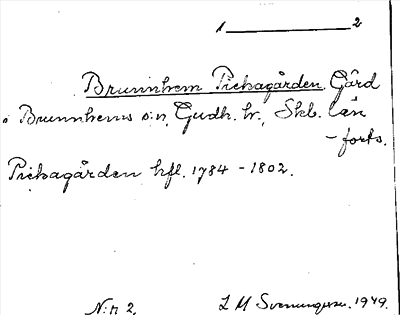 1 2
Brunnhem Pickagården. Gård
i Brunnhems s:n, Gudh. hr., Skb. län
- forts.
Pickagården hfl. 1784 - 1802.
N:r 2. L M Svenungsson. 1949.